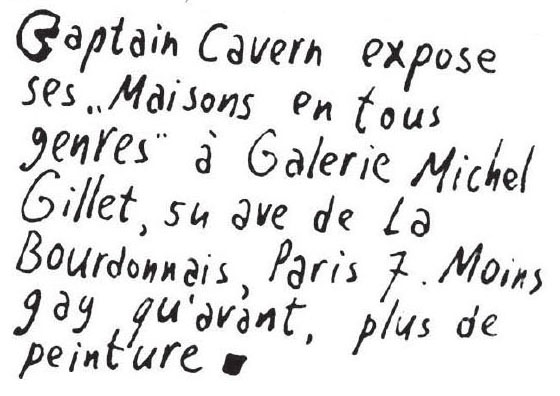 Captain Cavern expose
ses „Maisons en tous
genres" à Galerie Michel
Gillet, su ave de La
Bourdonnais, Paris 7. Moins
gay qu'avant, plus de
peinture